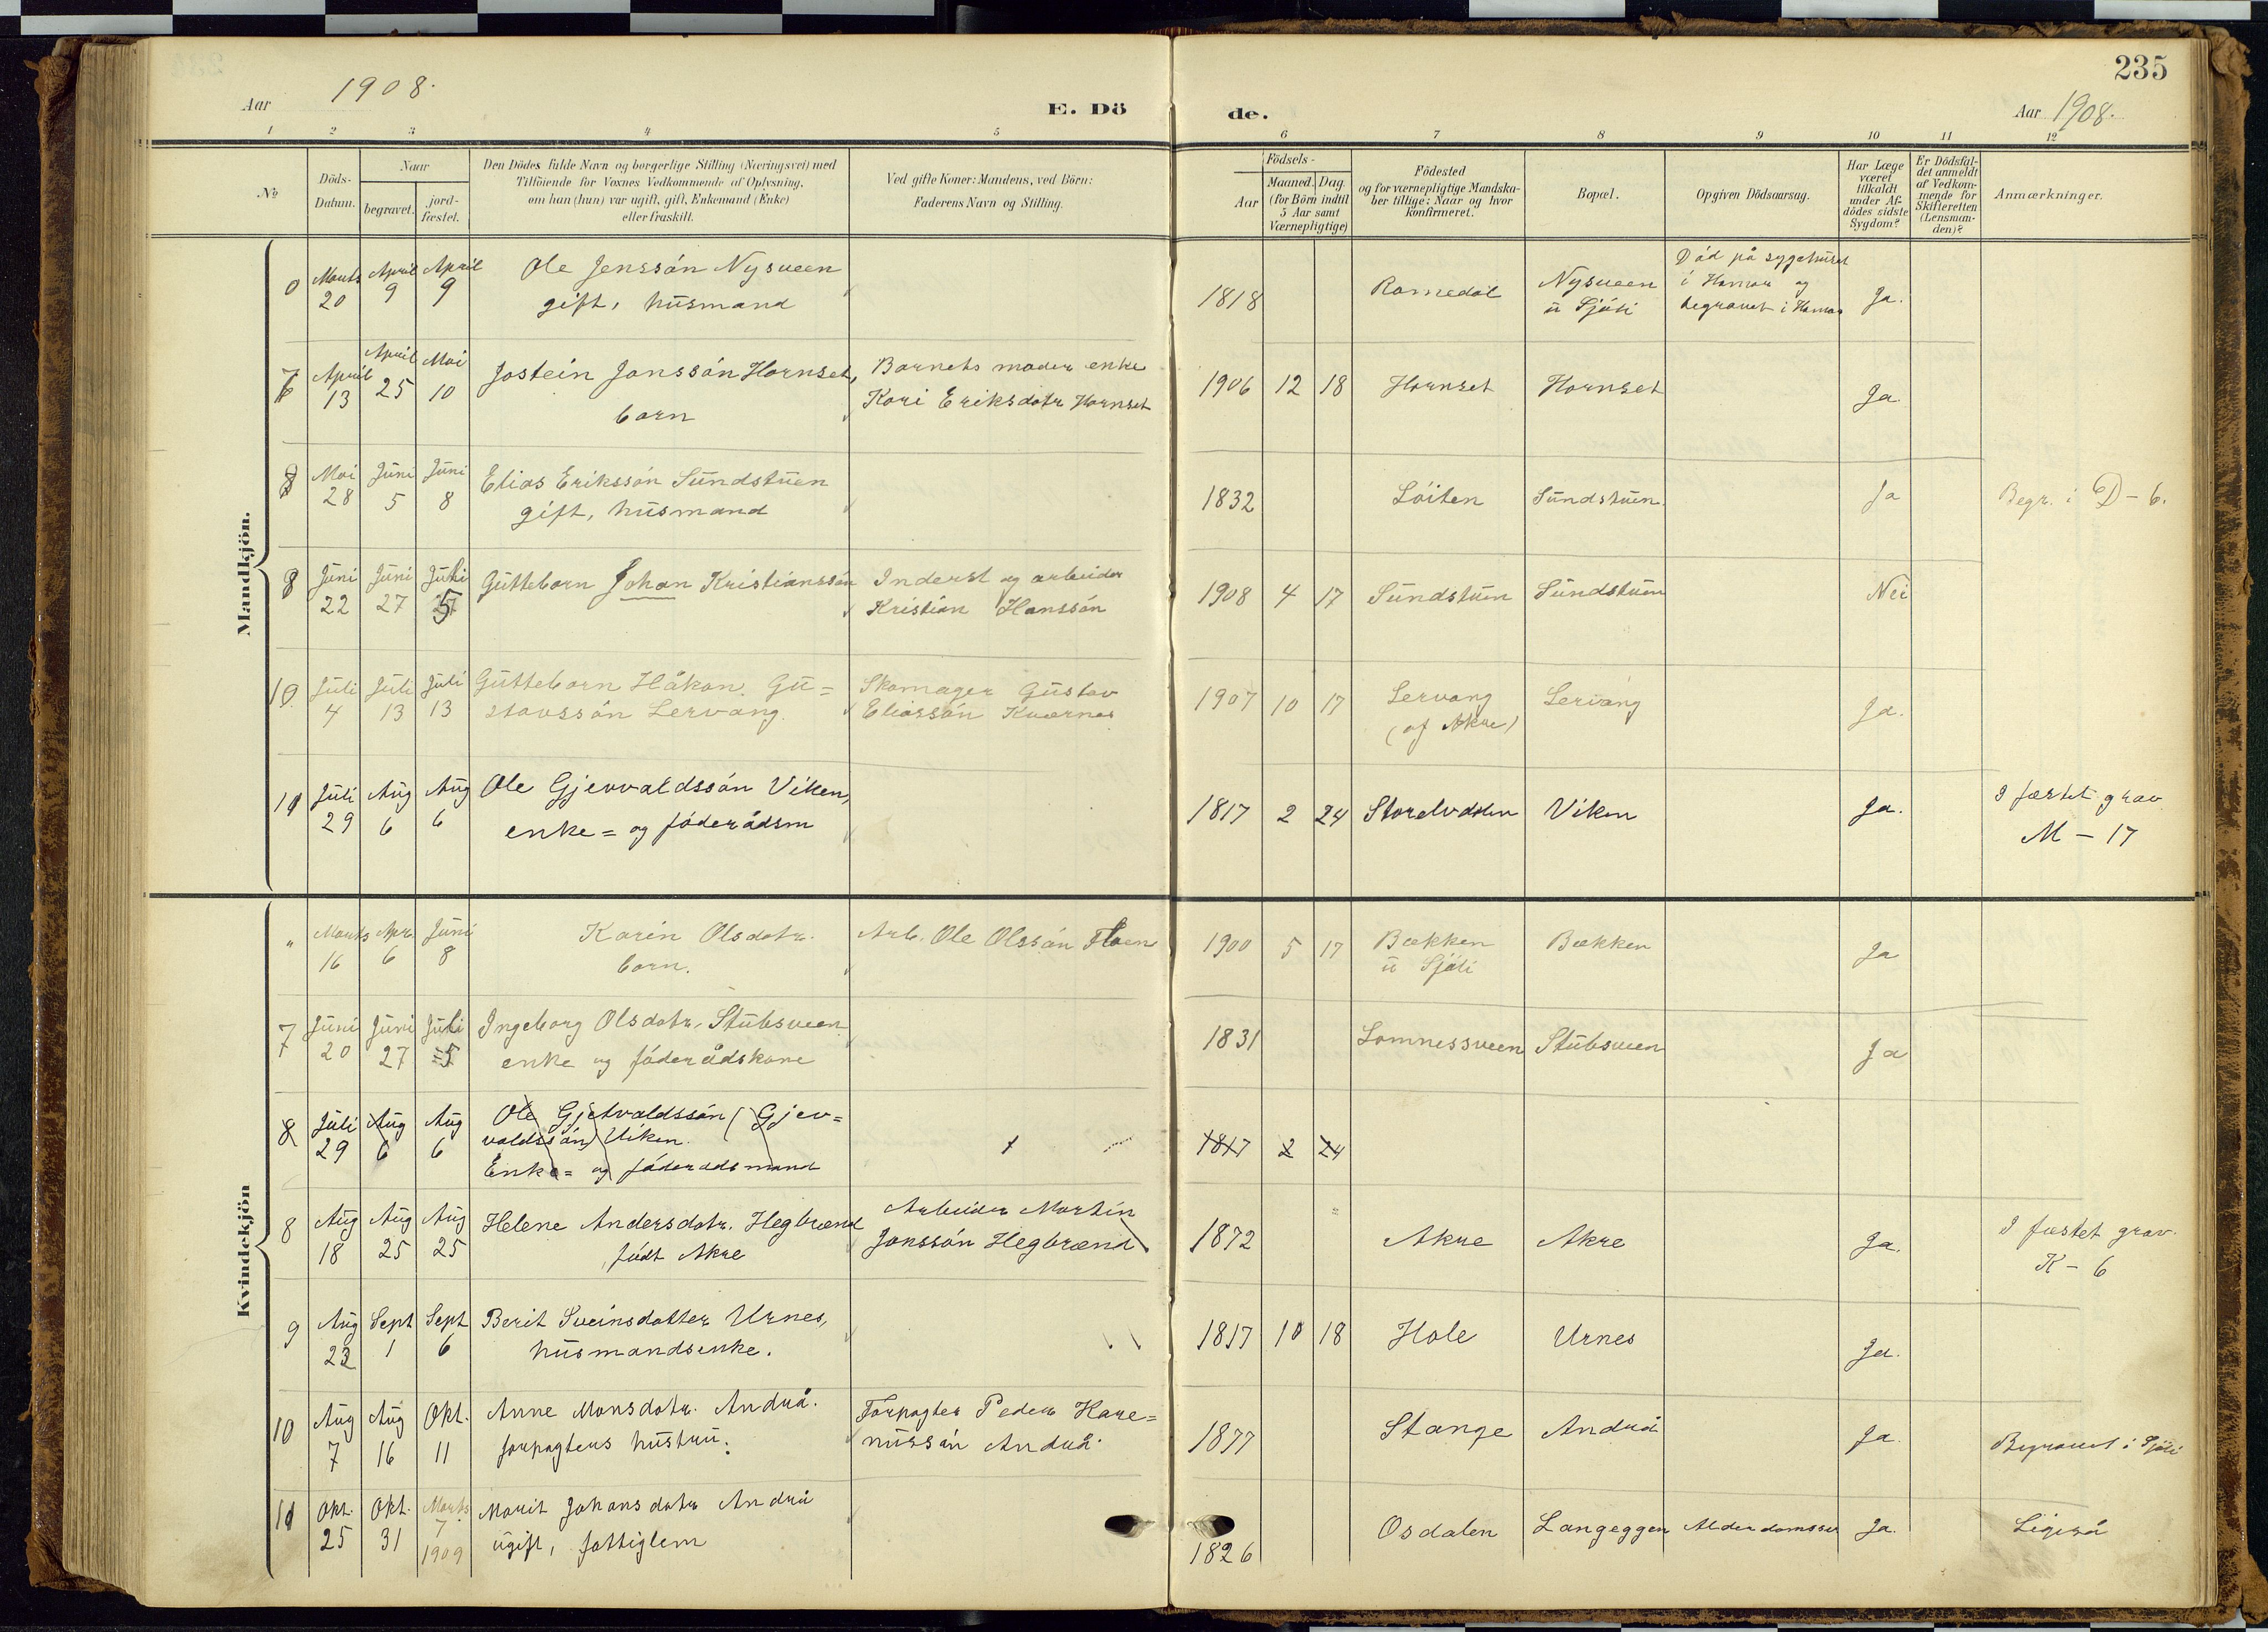 Aar 1908.
E. Dö
de.
235
Aar 1908.
1 2 3 4 5 6 7 8 9 10 11 12
No
Döds-
Datum.
Naar
begravet.
jord-
fæstet.
Den Dödes fulde Navn og borgerlige Stilling (Næringsvei) med
Tilföiende for Voxnes Vedkommende af Oplysning,
om han (hun) var ugift, gift, Enkemand (Enke)
eller fraskilt.
Ved gifte Koner: Mandens, ved Börn:
Faderens Navn og Stilling.
Födsels-
Aar
Maaned. Dag.
(for Börn indtil
5 Aar samt
Værnepligtige)
Födested
og for værnepligtige Mandska-
ber tillige: Naar og hvor
konfirmeret.
Bopæl.
Opgiven Dödsaarsag.
Har Læge
været
tilkaldt
under Af-
dödes sidste
Sygdom?
Er Dödsfal-
det anmeldt
af Vedkom-
mende for
Skifteretten
(Lensman-
den)?
Anmærkninger.
Mandkjön.
0 Marts 20 April 9 April 9
Ole Jenssön Nysveen
gift, husmand
1818
Romedal
Nysveen
u Sjöli
Död på sygehuset
i Hamar og
begravet i Hamar
Ja.
7 April 13 April 25 Mai 10
Jostein Jonssön Hornset,
barn
Barnets moder enke
Kari Eriksdotr Hornset
1906 12 18 Hornset Hornset Ja.
8 Mai 28 Juni 5 Juni 8
Elias Erikssön Sundstuen
gift, husmand
1832 Löiten Sundstuen. Ja Begr. i D - 6.
8 Juni 22 Juni 27 Juli 5
Guttebarn Johan Kristianssön
Inderst og arbeider
Kristian Hanssön
1908 4 17 Sundstuen Sundstuen Nei
10 Juli 4 Juli 13 Juli 13
Guttebarn Håkon Gu=
stavssön Lervang.
Skomager Gustav
Eliassön Kværnes
1907 10 17
Lervang
(af Akre)
Lervang Ja.
11 Juli 29 Aug 6 Aug 6
Ole Gjervaldssön Viken,
enke= og föderådsm
1817 2 24 Storelvdalen Viken Ja.
I fæstet grav
M - 17
Kvindekjön
" Marts 16 Apr. 6 Juni 8
Karin Olsdotr.
barn.
Arb. Ole Olssön Floen
1900 5 17
Bækken
u Sjöli
Bækken Ja
7 Juni 20 Juni 27 Juli 5
Ingeborg Olsdotr. Stubsveen
enke og föderådskone
1831 Lomnessveen Stubsveen Ja
8 Juli 29 Aug 6 Aug 6
Ole Gjetvaldssön (Gjev=
valdssön) Viken.
Enke= og föderådsmand
1817 2 24
8 Aug 18 Aug 25 Aug 25
Helene Andersdotr. Hegbrænd
födt Akre
Arbeider Martin
Jonssön Hegbrænd
1872 Akre Akre Ja.
I fæstet grav.
K - 6
9 Aug 23 Sept 1 Sept 6
Berit Sveinsdatter Urnes,
husmandsenke.
1817 10 18 Hole Urnes Ja.
10 Aug 7 Aug 16 Okt. 11
Anne Monsdotr. Andrå.
forpagters hustru.
Forpagter Peder Kare=
nussön Andrå.
1877 Stange Andrå Ja. Begravet i Sjöli
11 Okt. 25 Okt. 31 Marts 7 1909
Marit Johansdotr Andrå
ugift, fattiglem
1826 Osdalen Langeggen Ja.